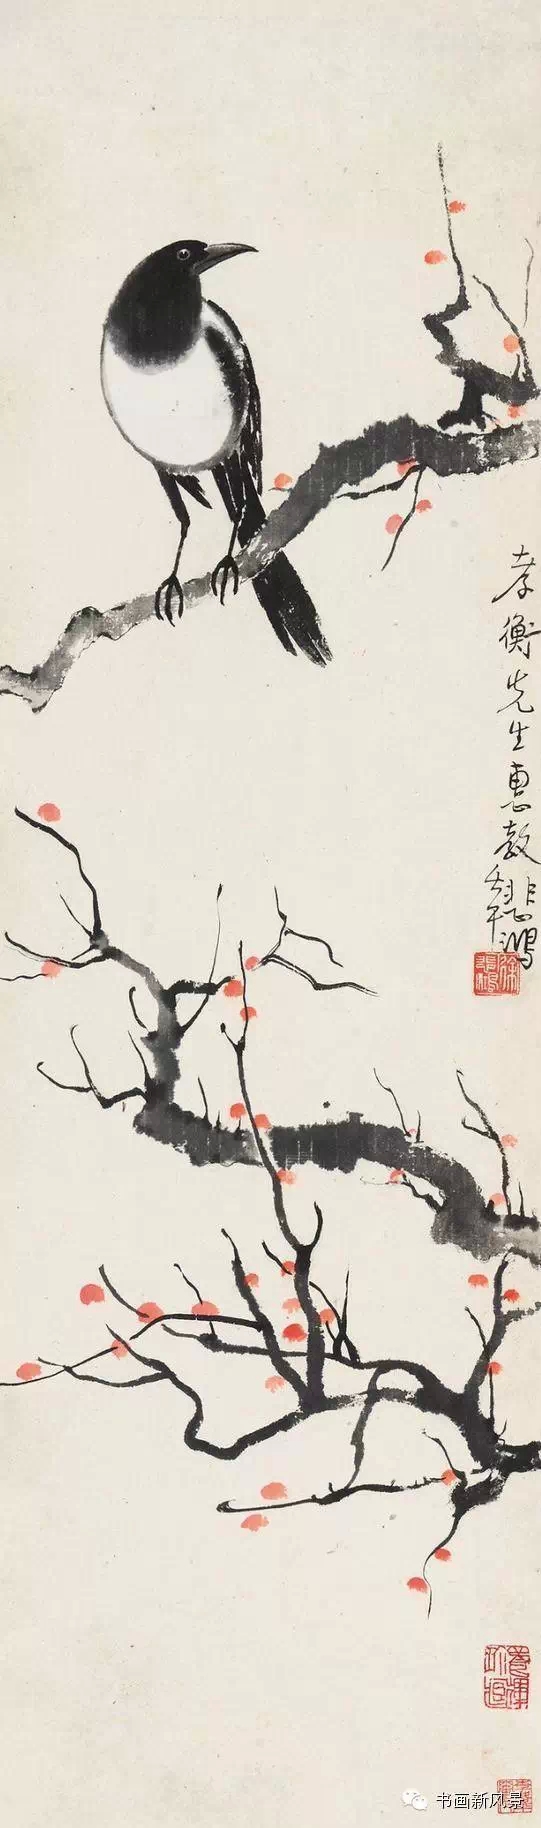 孝衡先生惠教
悲鸿
壬午
徐悲鸿
书画新风景